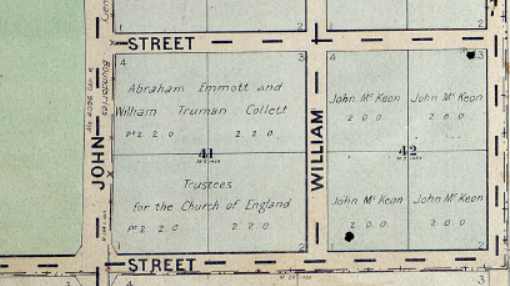 1
2
1
2
STREET
4
3
4
3
Boundaries
Abraham Emmott and
William Truman Collett
Pt 2 2 0
2 2 0
John McKeon
John McKeon
2 0 0
2 0 0
JOHN
41
WILLIAM
42
Trustees
for the Church of England
Pt 2 2 0
2 2 0
John McKeon
John McKeon
2 0 0
2 0 0
1
2
1
2
STREET
3
4
3
4
3